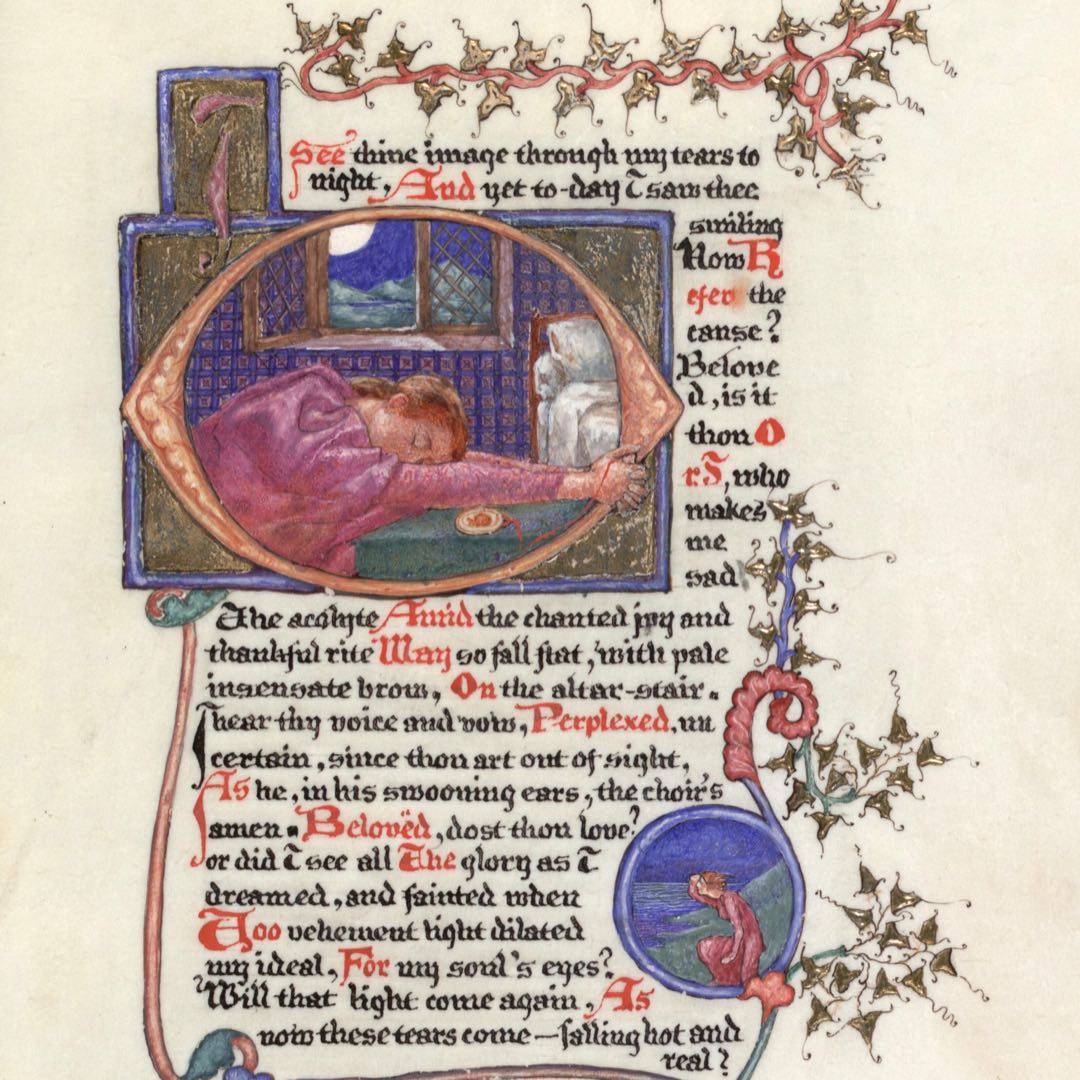 I See thine image through my tears to
night, And yet to-day I saw thee
smiling
How R
efer the
cause?
Belove
d, is it
thou O
r I, who
makes
me
sad
The acolyte Amid the chanted joy and
thankful rite May so fall flat, with pale
insensate brow, On the altar-stair.
I hear thy voice and vow, Perplexed, un
certain, since thou art out of sight,
As he, in his swooning ears, the choir's
amen. Belovëd, dost thou love?
or did I see all The glory as I
dreamed, and fainted when
Too vehement light dilated
my ideal, For my soul's eyes?
Will that light come again, As
now these tears come — falling hot and
real?